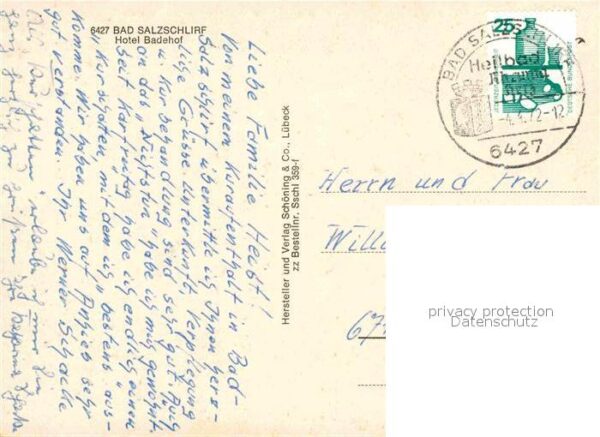 6427 BAD SALZSCHLIRF
Hotel Badehof
Liebe Familie Heibt!
Von meinem Kuraufenthalt in Bad-
Salzschlirf übermittle ich Ihnen herz-
liche Grüsse. Unterkunft, Verpflegung
u. Kurbehandlung sind sehr gut. Auch
an das "Nüffstun" habe ich mich gewöhnt.
Seit Karfreitag habe ich endlich einen
"Kurschatten", mit dem ich bestens aus-
komme. Wir haben uns auf Anhieb sehr
gut verstanden. Ihr Werner Schacke
Hersteller und Verlag Schöning & Co., Lübeck
zz Bestellnr. Sschl 359-f
25
DEUTSCHE BUNDESPOST
BAD SALZSCHLIRF
Heilbad
Rheuma
Gicht
-4.4.72-12
6427
Herrn und Frau
Will
67
privacy protection
Datenschutz